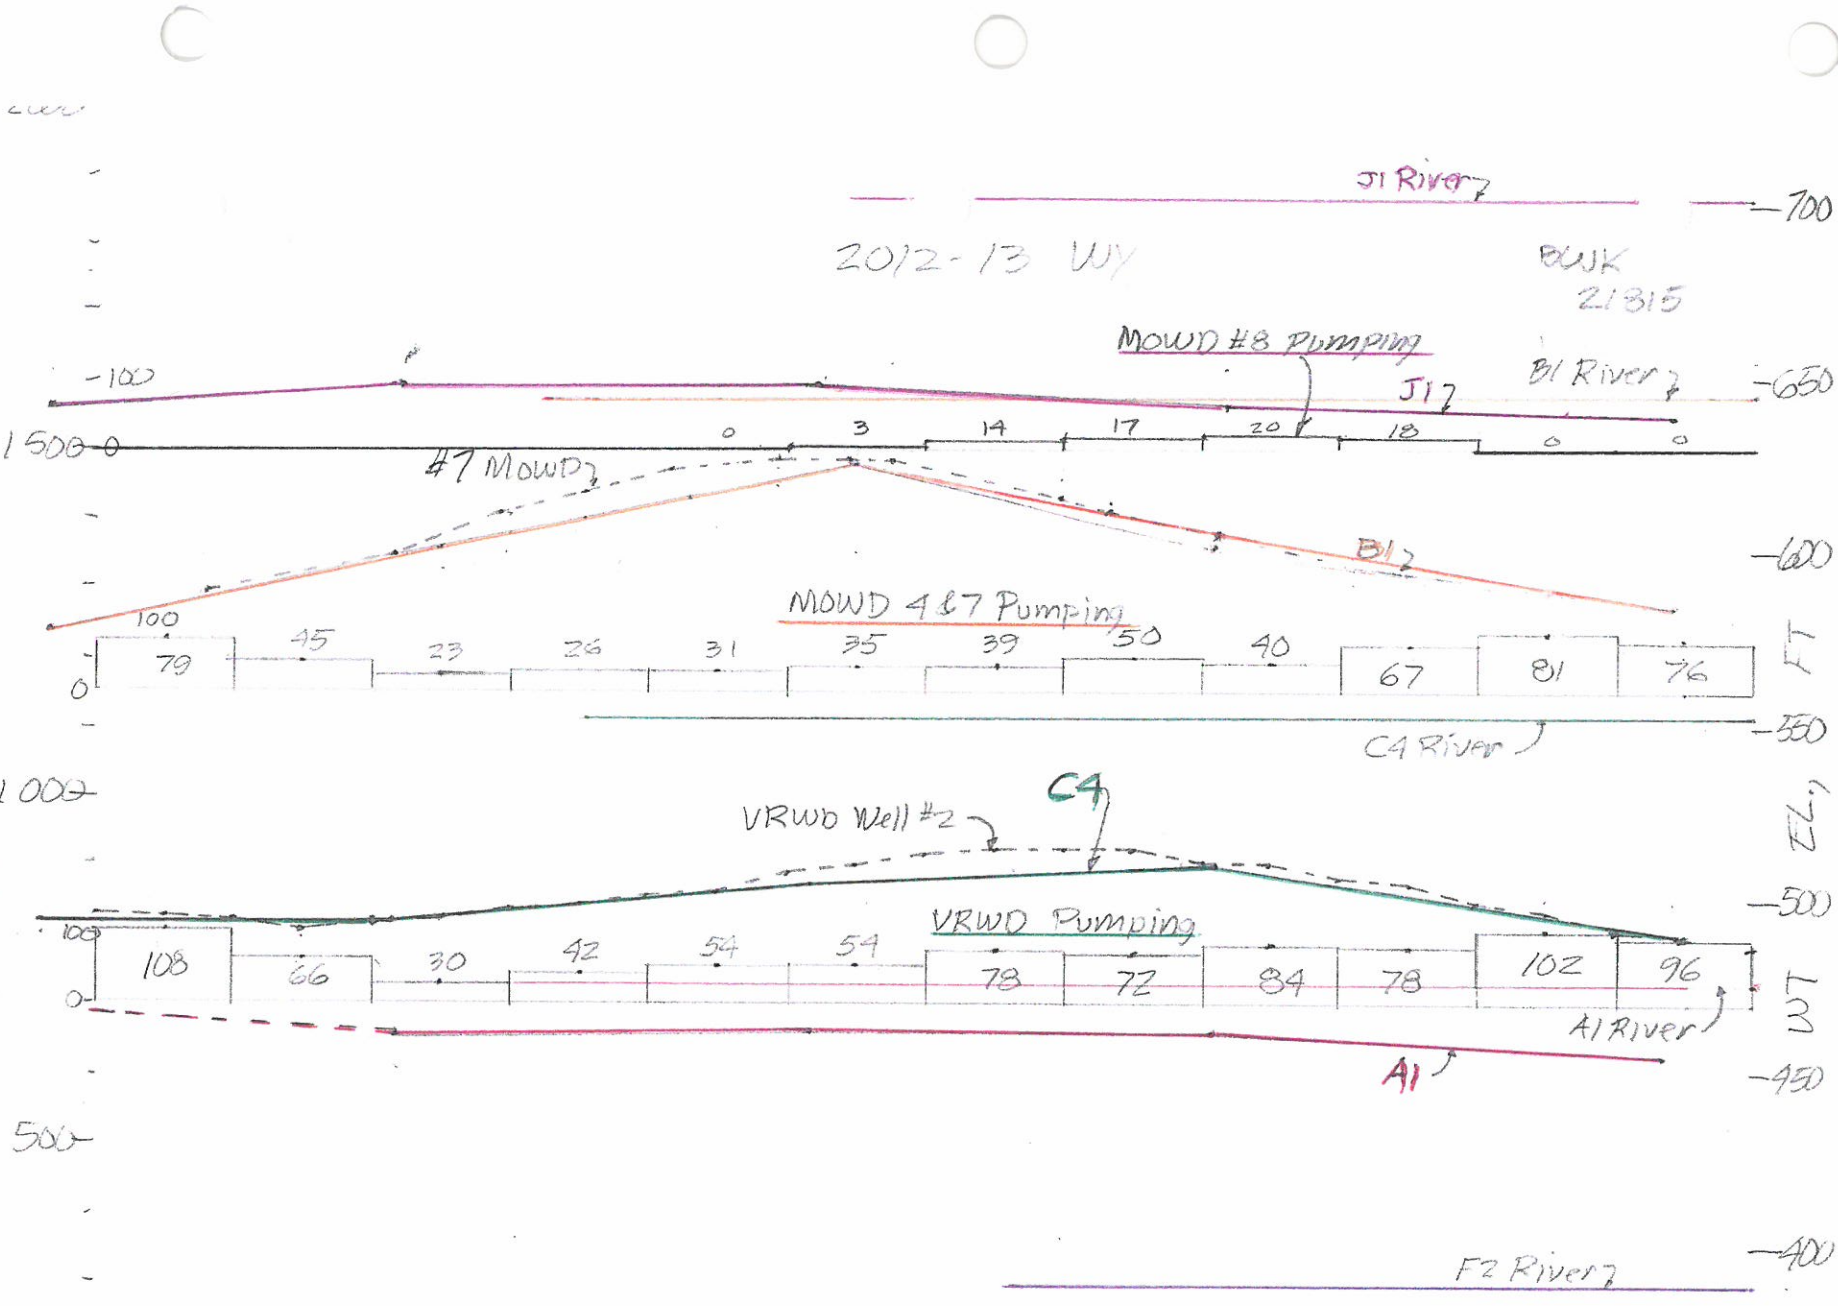 J1 River
-700
2012-13 WY
BWK
21815
MOWD #8 Pumping
-100
J1
B1 River
-650
1500-0
0 3 14 17 20 18 0 0
#7 MOWD
B1
-600
MOWD 4&7 Pumping
100
79 45 23 26 31 35 39 50 40 67 81 76
0
FT
C4 River
-550
1000
C4
VRWD Well #2
EL.,
-500
VRWD Pumping
100
108 66 30 42 54 54 78 72 84 78 102 96
0
A1 River
WT
A1
-450
500
-400
F2 River